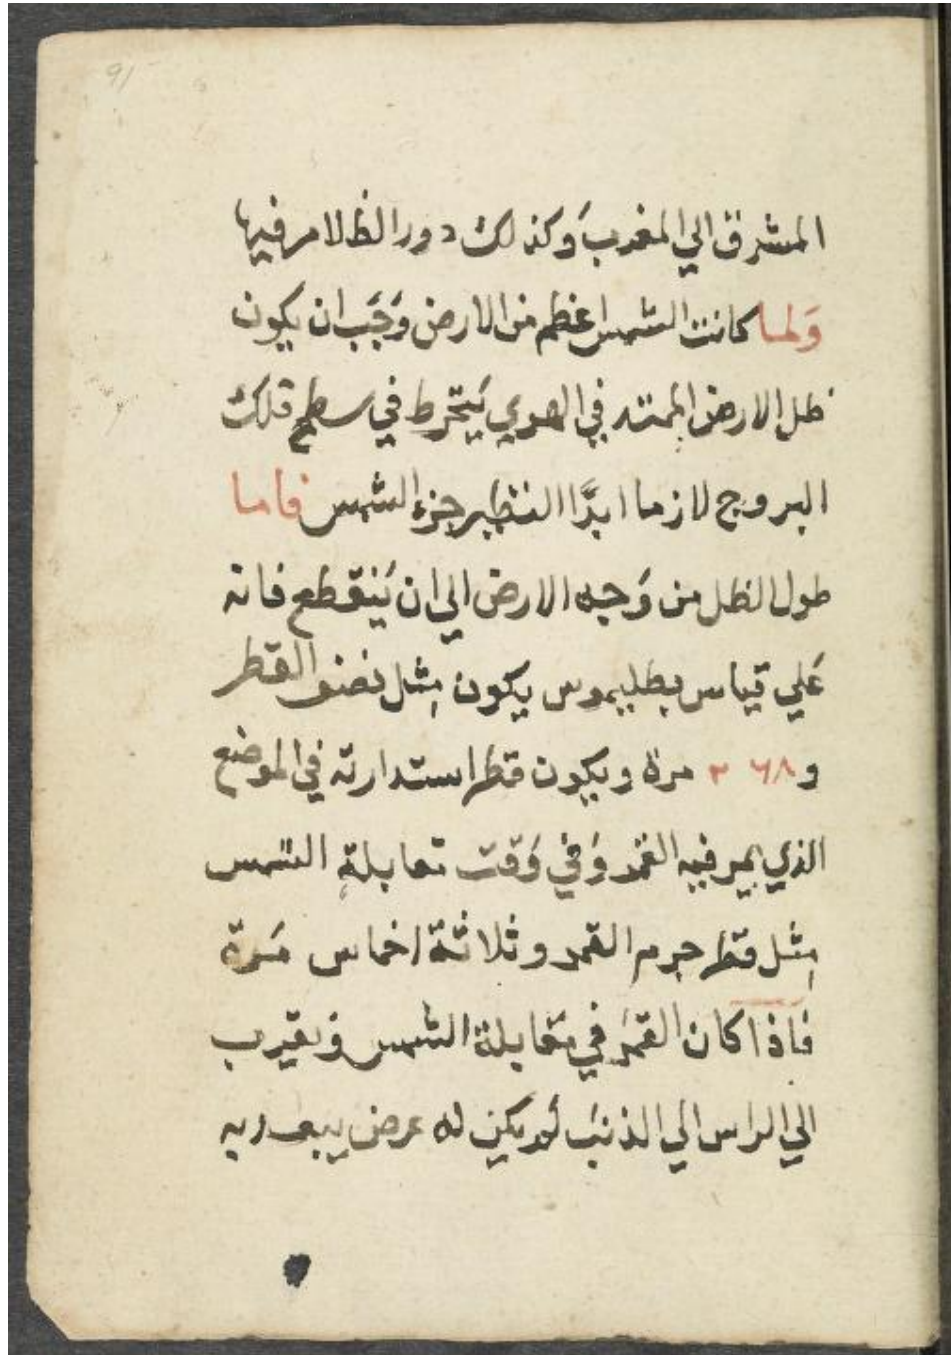 المشرق الي المغرب وَكذلك دور الظلام فيها
وَلما كانت الشمس اعظم من الارض وَجَب ان يكون
ظل الارض الممتد في الهوي يَنخرط في سطح فلك
البروج لازما ابدًا النظير جزء الشمس فاما
طول الظل من وَجه الارض الي ان يَنقطع فانه
عَلي قياس بطليموس يكون مِثل نصف القطر
و٢٦٨ مرة ويكون قطر استدارته في الموضع
الذي يمر فيه القمر وَفي وَقت مقابلة الشمس
مِثل قطر جرم القمر وثلاثة اخماس مَرة
فاذا كان القمَر في مقابلة الشمس وَبقرب
الي الراس الي الذنبَ لم يكن له عرض يبعد به